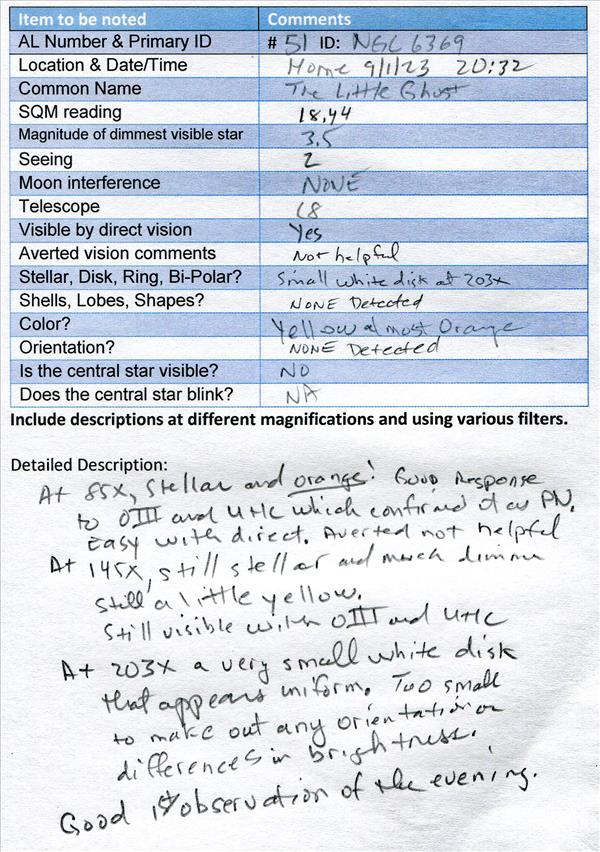 Item to be noted Comments
AL Number & Primary ID # 51 ID: NGC 6369
Location & Date/Time Home 9/1/23 20:32
Common Name The Little Ghost
SQM reading 18.44
Magnitude of dimmest visible star 3.5
Seeing 2
Moon interference NONE
Telescope 18
Visible by direct vision Yes
Averted vision comments Not helpful
Stellar, Disk, Ring, Bi-Polar? Small white disk at 203x
Shells, Lobes, Shapes? NONE Detected
Color? Yellow almost Orange
Orientation? NONE Detected
Is the central star visible? NO
Does the central star blink? NA
Include descriptions at different magnifications and using various filters.
Detailed Description:
At 85X, Stellar and orange! Good Response
to OIII and UHC which confirmed it as PN.
Easy with direct. Averted not helpful
At 145X, still stellar and much dimmer
still a little yellow.
Still visible with OIII and UHC
At 203X a very small white disk
that appears uniform. Too small
to make out any orientation or
differences in brightness.
Good 1st observation of the evening.